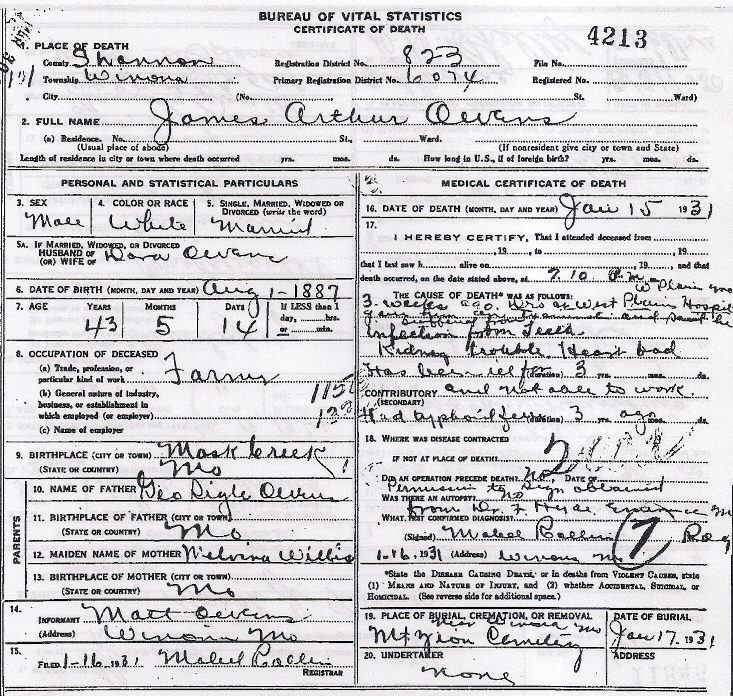 BUREAU OF VITAL STATISTICS
CERTIFICATE OF DEATH
4213
1. PLACE OF DEATH
County Shannon Registration District No. 823 File No.
Township Winona Primary Registration District No. 6074 Registered No.
City (No. St. Ward)
2. FULL NAME James Arthur Owens
(a) Residence. No. St., Ward.
(Usual place of abode) (If nonresident give city or town and State)
Length of residence in city or town where death occurred yrs. mos. ds. How long in U.S., if of foreign birth? yrs. mos. ds.
PERSONAL AND STATISTICAL PARTICULARS
3. SEX 4. COLOR OR RACE 5. SINGLE, MARRIED, WIDOWED OR
DIVORCED (write the word)
Male White Married
5A. IF MARRIED, WIDOWED, OR DIVORCED
HUSBAND OF
(OR) WIFE OF Dora Owens
6. DATE OF BIRTH (MONTH, DAY AND YEAR) Aug 1-1887
7. AGE YEARS MONTHS DAYS IF LESS than 1
day, hrs.
or min.
43 5 14
8. OCCUPATION OF DECEASED
(a) Trade, profession, or
particular kind of work Farmer
(b) General nature of industry,
business, or establishment in
which employed (or employer)
(c) Name of employer
9. BIRTHPLACE (CITY OR TOWN) Creek
(STATE OR COUNTRY) Mo
PARENTS
10. NAME OF FATHER Geo Sigle Owens
11. BIRTHPLACE OF FATHER (CITY OR TOWN)
(STATE OR COUNTRY) Mo
12. MAIDEN NAME OF MOTHER Willis
13. BIRTHPLACE OF MOTHER (CITY OR TOWN)
(STATE OR COUNTRY) Mo
14.
INFORMANT Matt Owens
(Address) Winona Mo
15.
FILED 1-16, 1931 Mabel Rollins
REGISTRAR
MEDICAL CERTIFICATE OF DEATH
16. DATE OF DEATH (MONTH, DAY AND YEAR) Jan 15 1931
17.
I HEREBY CERTIFY, That I attended deceased from
, 19 , to , 19
that I last saw h alive on , 19 , and that
death occurred, on the date stated above, at 210 P.m.
W Plain Mo
THE CAUSE OF DEATH* WAS AS FOLLOWS:
3 weeks ago. Was at West Plain Hospital
infection from Teeth
Kidney trouble. Heart bad
Has been (duration) 3 yrs. mos. ds.
CONTRIBUTORY and not able to work.
(SECONDARY)
Had typhoid fever (duration) 3 ago
18. WHERE WAS DISEASE CONTRACTED
IF NOT AT PLACE OF DEATH?
DID AN OPERATION PRECEDE DEATH? No DATE OF
Permission to sign obtained
WAS THERE AN AUTOPSY? no
from Dr. F Hyde, Eminence Mo
WHAT TEST CONFIRMED DIAGNOSIS?
(Signed) Mabel Rollins Reg
1-16, 1931 (Address) Winona Mo
*State the DISEASE CAUSING DEATH, or in deaths from VIOLENT CAUSES, state
(1) MEANS AND NATURE OF INJURY, and (2) whether ACCIDENTAL, SUICIDAL, or
HOMICIDAL. (See reverse side for additional space.)
19. PLACE OF BURIAL, CREMATION, OR REMOVAL DATE OF BURIAL
near Winona Mo
Mt Zion Cemetery Jan 17, 1931
20. UNDERTAKER ADDRESS
none